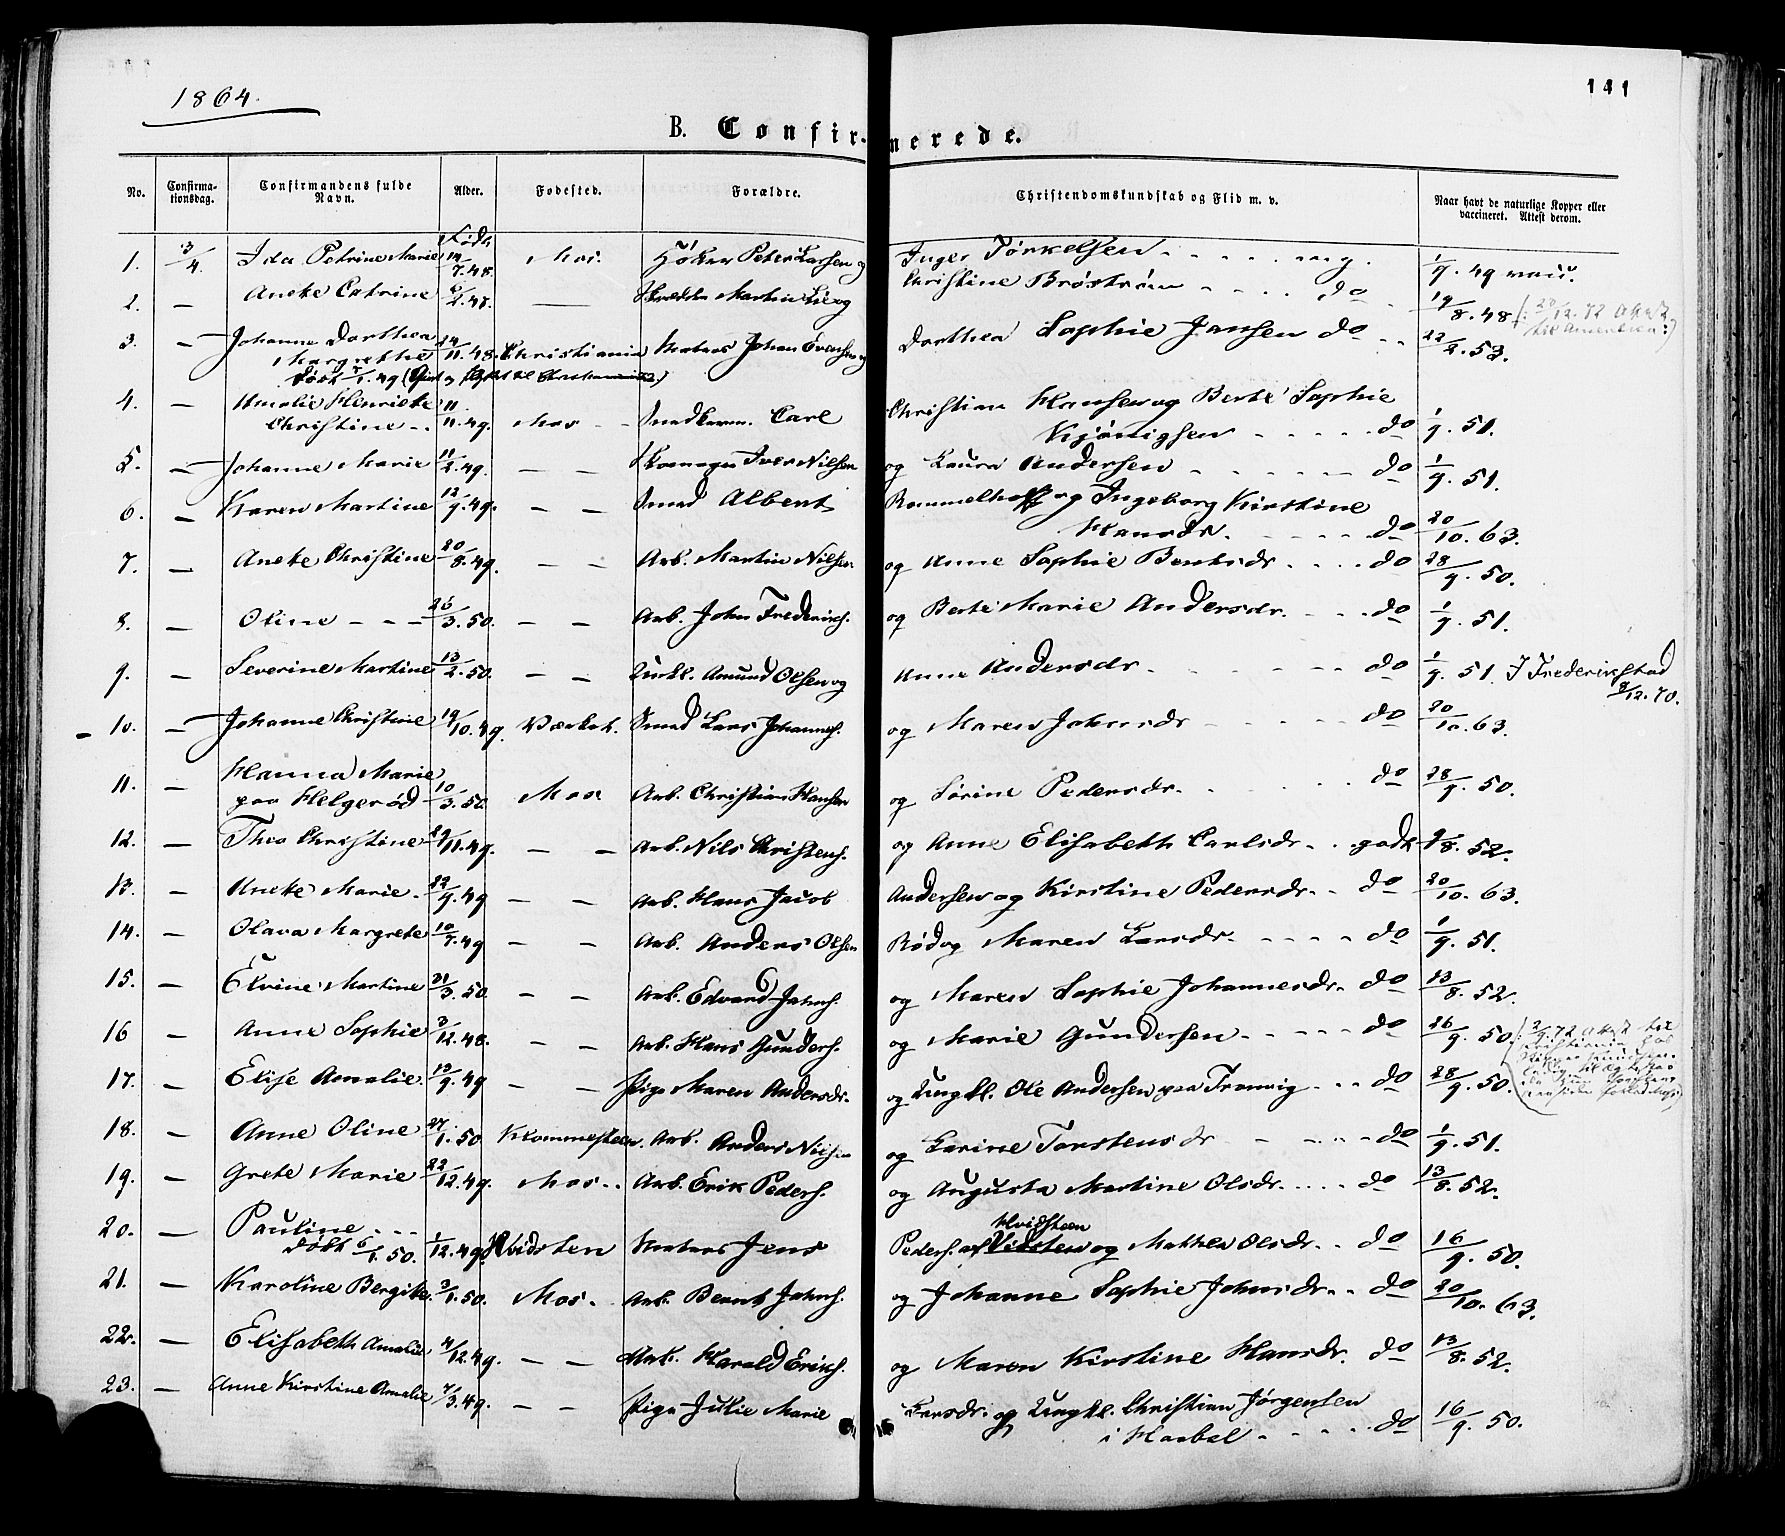 1864.
141
B. Confirmerede.
No. Confirmationsdag. Confirmandens fulde Navn. Alder. Fødested. Forældre. Christendomskundskab og Flid m. v. Naar havt de naturlige Kopper eller vaccineret. Attest derom.
Født
1. 3/4. Ida Petrine Marie 14/7.48. Mos. Høker Peter Larsen og Inger Torkelsen - - - - mg. 1/9. 49 vacc.
2. — Anete Catrine 6/2.48. — Skredder Martin Lie og Christine Brøström - - - - do 19/8.48
3. — Johanne Dorthea Margrethe 24/11.48. Christiania Matros Johan Evensen og Dorthea Sophie Jansen do - - 22/2.53.
Døbt 1/1.49
4. — Amalie Henriette Christine - - 11/11.49. Mos - - Snedkerm. Carl Christian Hansen og Berte Sophie Kjönigsen - - - - do 1/9. 51.
5. — Johanne Marie 11/2.49. — — Skomager Iver Nilsen og Laura Andersen - - - - do 1/9. 51.
6. — Karen Martine 12/9.49. — — Smed Albert Rommelhoff og Ingeborg Kirstine Hansdr. - - - - do 20/10.63.
7. — Anete Christine 20/8.49. — — Arb. Martin Nilsen og Anne Sophie Berntsdr - - - do 28/9.50.
8. — Oline - - - 26/3.50. — — Arb. John Frederiks. og Berte Marie Andersdr. - - - do 1/9. 51.
9. — Severine Martine 13/2.50. — — Amund Olsen og Anne Andersdr - - - - do 1/9. 51. I Frederikstad 9/12.70.
10. — Johanne Christine 19/10.49. Værket. Smed Lars Johannes. og Maren Johnsdr - - - - do 20/10.63.
11. — Hanna Marie paa Helgerød 10/3.50. Mos Arb. Christian Hansen og Sörine Pedersdr. - - - - do 28/9.50.
12. — Thea Christine 29/11.49. — — Arb. Nils Christens. og Anne Elisabeth Carlsdr - - godt 9/8.52.
13. — Anete Marie. 22/9.49 — — Arb. Hans Jacob Andersen og Kirstine Pedersdr. - do 20/10.63.
14. — Olava Margrete 10/7.49 — — Arb. Anders Olsen Rød og Maren Larsdr. - - - - do 1/9. 51.
15. — Elvine Martine 31/3.50. — — Arb. Edvard Johns. og Maren Sophie Johannesdr. do 13/8.52.
16 — Anne Sophie 3/12.48. — — Arb. Hans Gunders. og Marie Gundersen - - - - do 26/9.50.
17. — Elise Amalie 13/9.49 — — Pige Maren Andersdr. og Ungkl. Ole Andersen paa Tronvig - - do 28/9.50.
18. — Anne Oline 27/1.50 Krommesteen. Arb. Anders Nilsen og Karine Torstensdr - - - - do 1/9. 51.
19. — Grete Marie 22/12.49. Mos - - Arb. Erik Peders. og Augusta Martine Olsdr. - - - do 13/8.52.
20. — Pauline - - - Døbt 6/1.50. 1/12.49. Hvidsten Matros Jens Peders. af Hvidsteen og Mathea Olsdr. - do 16/9.50.
21. — Karoline Bergite. 3/1.50. Mos. Arb. Bernt Johns. og Johanne Sophie Johnsdr. - do 20/10.63.
22. — Elisabeth Amalie 4/12.49. — — Arb. Harald Eriks. og Maren Kirstine Hansdr. do 13/8.52.
23. — Anne Kirstine Amalie 4/3.49. — — Pige Julie Marie Larsdr. og Ungkl. Christian Jørgensen i Horbel - - - - do 16/9.50.